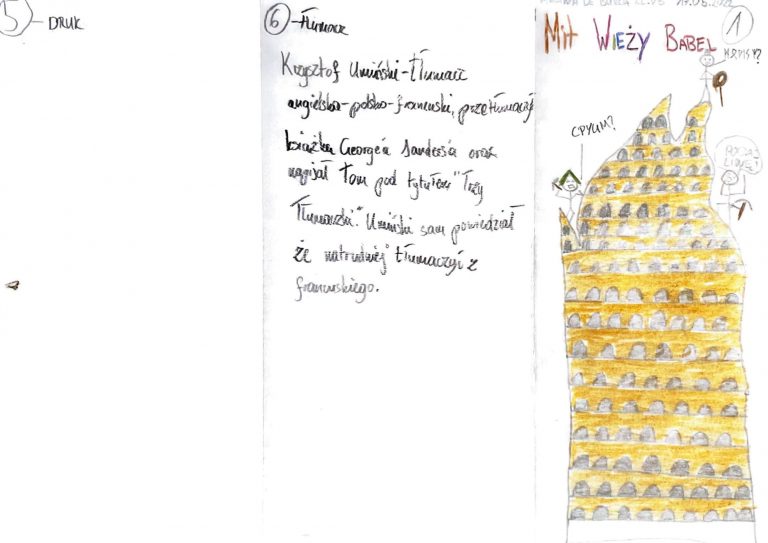 5 - DRUK
6 - Tłumacz
Krzysztof Umiński - tłumacz
angielsko-polsko-francuski, przetłumaczył
książkę George'a Sandersa oraz
napisał tom pod tytułem "Trzy
Tłumaczki". Umiński sam powiedział
że natrudniej tłumaczyć z
francuskiego.
17.05.2022
1
MIT WIEŻY BABEL
CPYUM?
PODAJ
LINĘ!